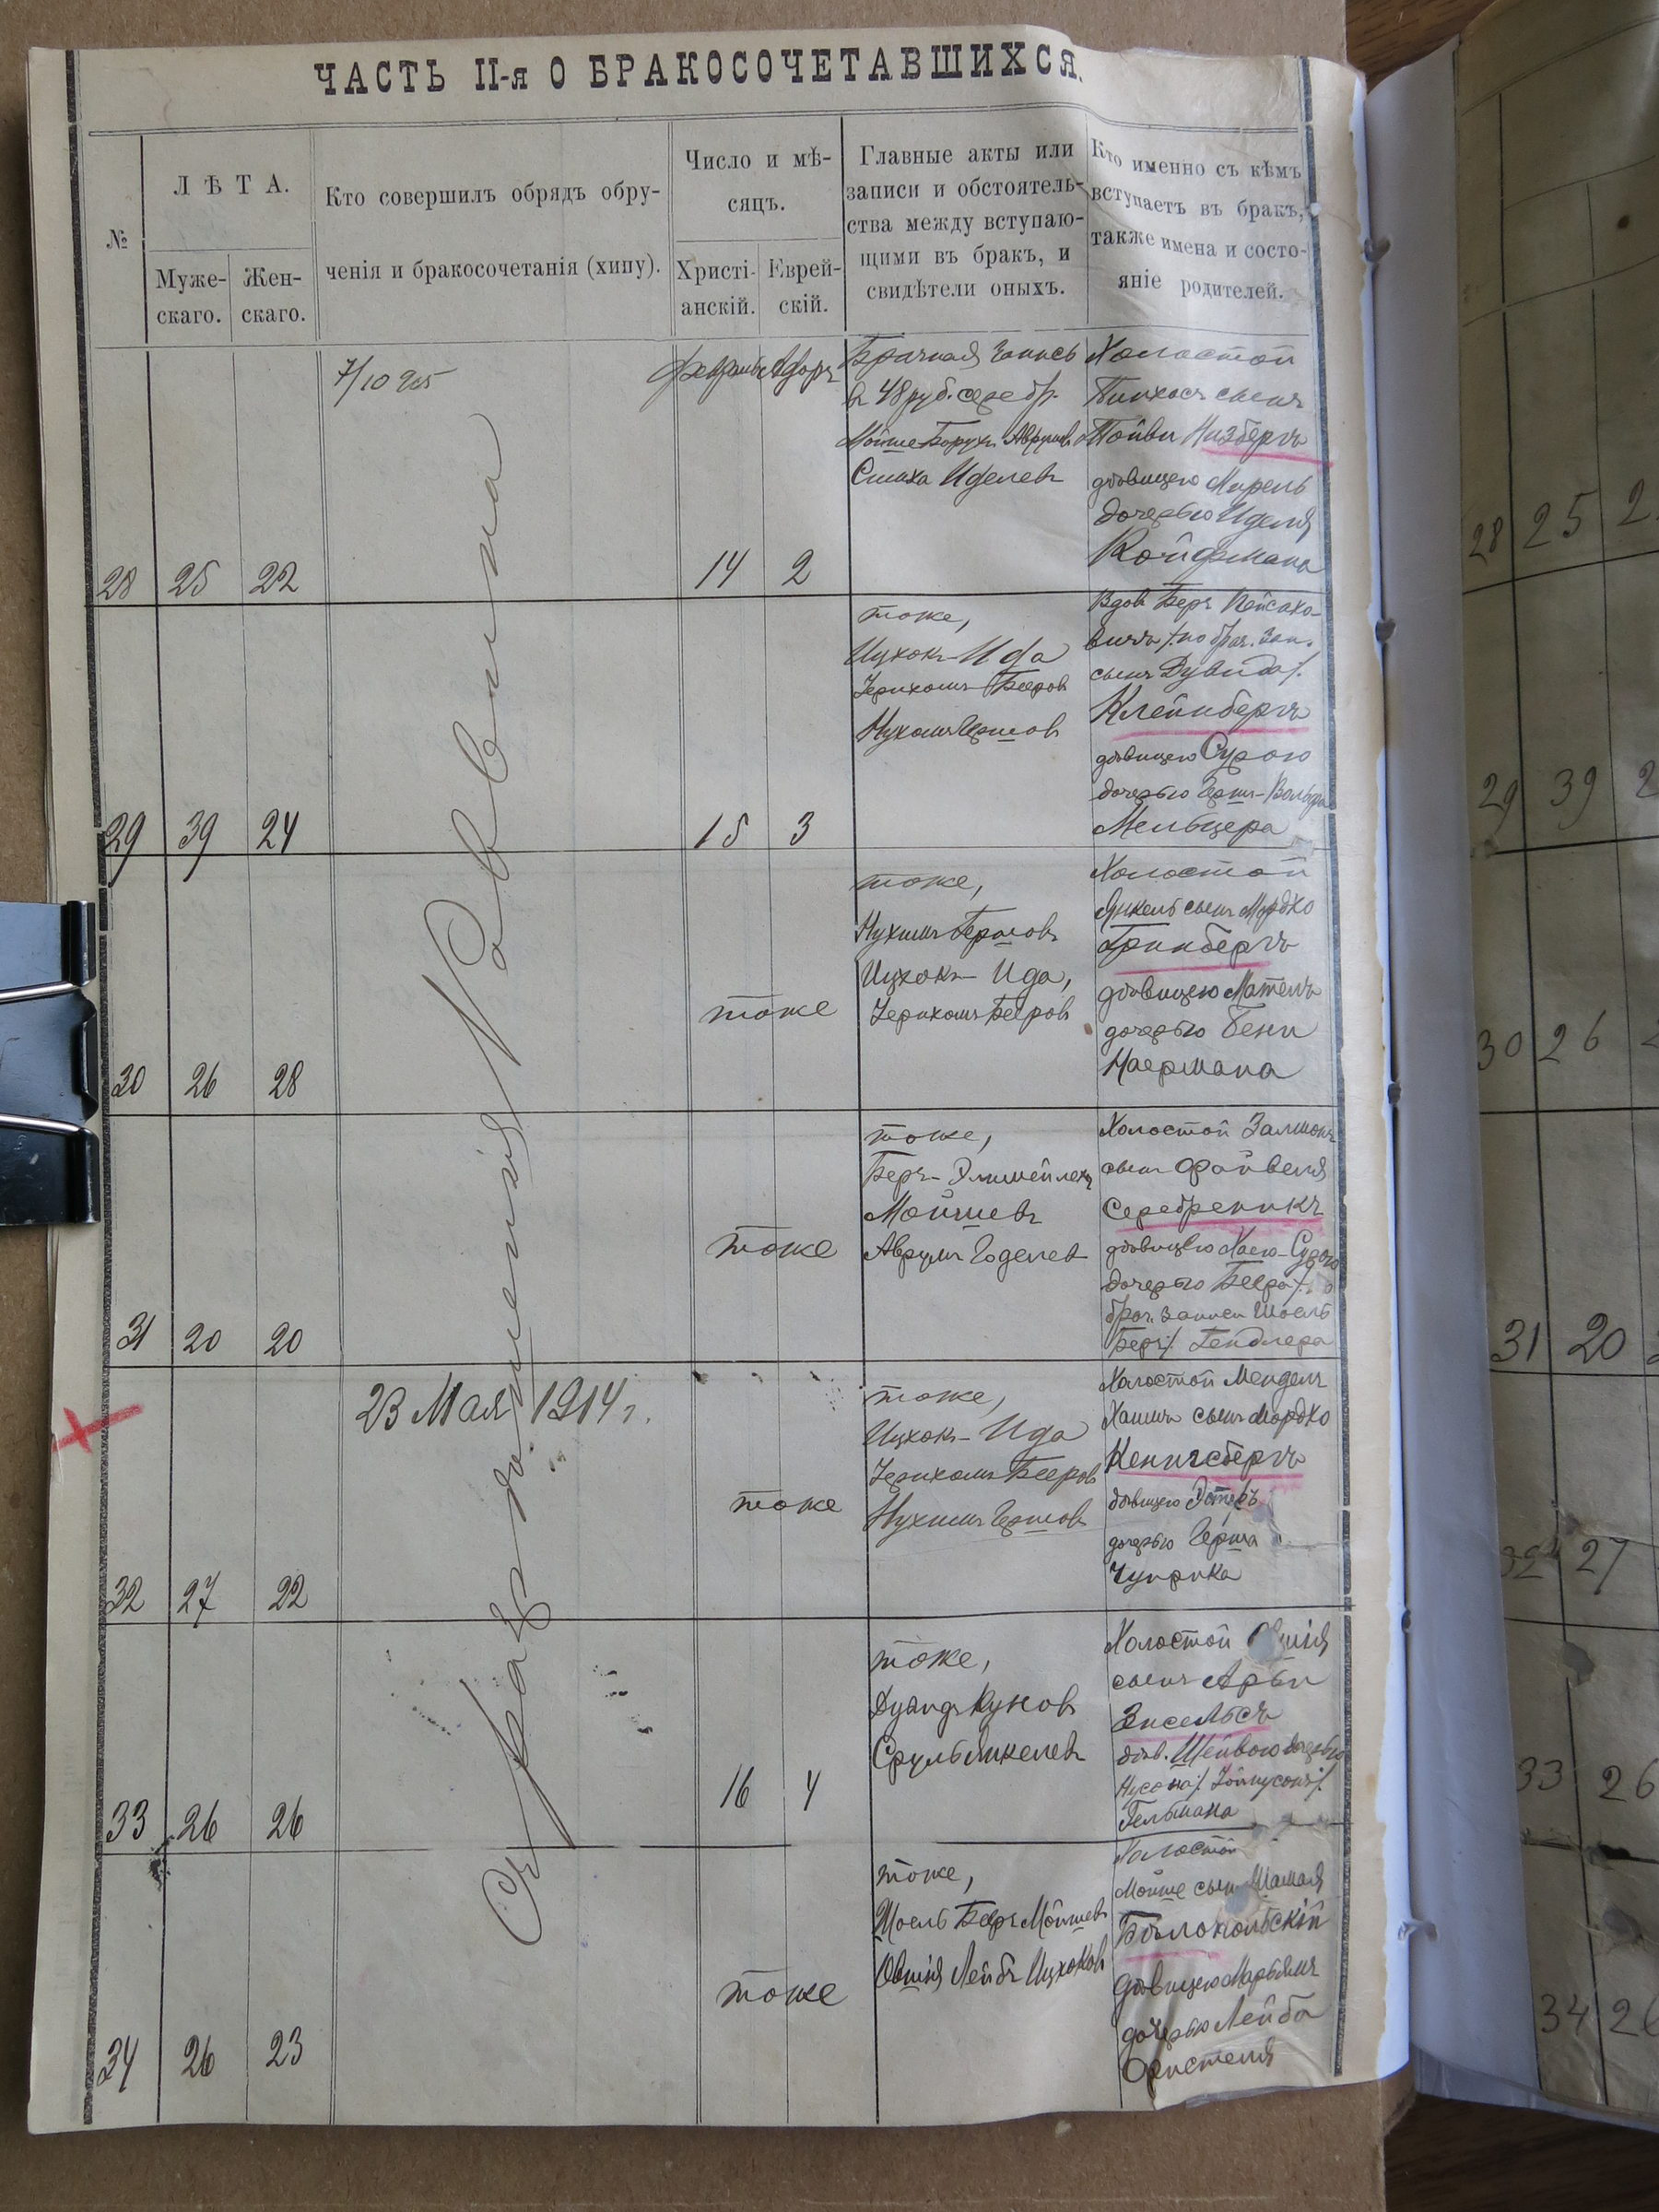 ЧАСТЬ II-я О БРАКОСОЧЕТАВШИХСЯ.
№
ЛѢТА.
Муже-
скаго.
Жен-
скаго.
Кто совершилъ обрядъ обру-
ченія и бракосочетанія (хипу).
Число и мѣ-
сяцъ.
Христі-
анскій.
Еврей-
скій.
Главные акты или
записи и обстоятель-
ства между вступаю-
щими въ бракъ, и
свидѣтели оныхъ.
Кто именно съ кѣмъ
вступаетъ въ бракъ,
также имена и состо-
яніе родителей.
28
25
22
7/10 905
Февраль
Адаръ
14
2
Брачная запись
в 48 руб. серебр.
Мойше Борухъ Аврумовъ
Симха Иделевъ
Холостой
Пинхасъ сынъ
Тойвы Низбергъ
дѣвицею Мирель
дочерью Иделя
Койфмана
29
39
24
15
3
тоже,
Ицхокъ-Ида
Іерихомъ Бееровъ
Нухимъ Гершов
Вдов Беръ Пейсахо-
вичъ /:по брач. зап.
сынъ Дувида/.
Клейнбергъ
дѣвицею Сурою
дочерью Герш-Вольфа
Мельцера
30
26
28
тоже
тоже,
Ицхокъ-Ида,
Іерихомъ Бееров
Холостой
Янкель сынъ Мордко
Гринбергъ
дѣвицею Матель
дочерью Бени
Наермана
31
20
20
тоже
тоже,
Беръ-Элимейлехъ
Мойшевъ
Аврумъ Годелев
Холостой Залманъ
сынъ Файвеля
Серебреникъ
дѣвицею Хаею-Сурою
дочерью Беера/:по
брач. записи Шоель
Беръ/. Гендлера
32
27
22
23 Мая 1914 г.
тоже
тоже,
Ицхокъ-Ида
Іерихомъ Бееров
Нухимъ Гершов
Холостой Мендель
Хаимъ сынъ Мордко
Кенигсбергъ
дѣвицею Эстеръ
дочерью Герша
Чуприка
33
26
26
16
4
тоже,
Сруль Янкелевъ
Холостой Овшія
сынъ Арьи
Зисельсъ
дѣв. Шейвою дочерью
Гельмана
34
26
23
тоже
тоже,
Шоель Беръ Мойшевъ
Овшія Лейбъ Ицхоковъ
Холостой
Мойше сынъ Шамая
Бѣлопольскій
дѣвицею Марьямъ
дочерью Лейба
Фистеля
28
25
29
39
30
26
31
20
32
27
33
26
34
26